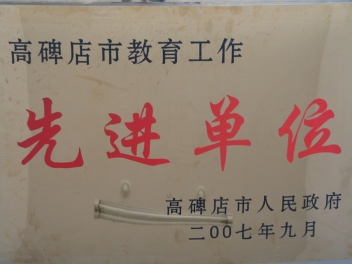 高碑店市教育工作
先进单位
高碑店市人民政府
二00七年九月